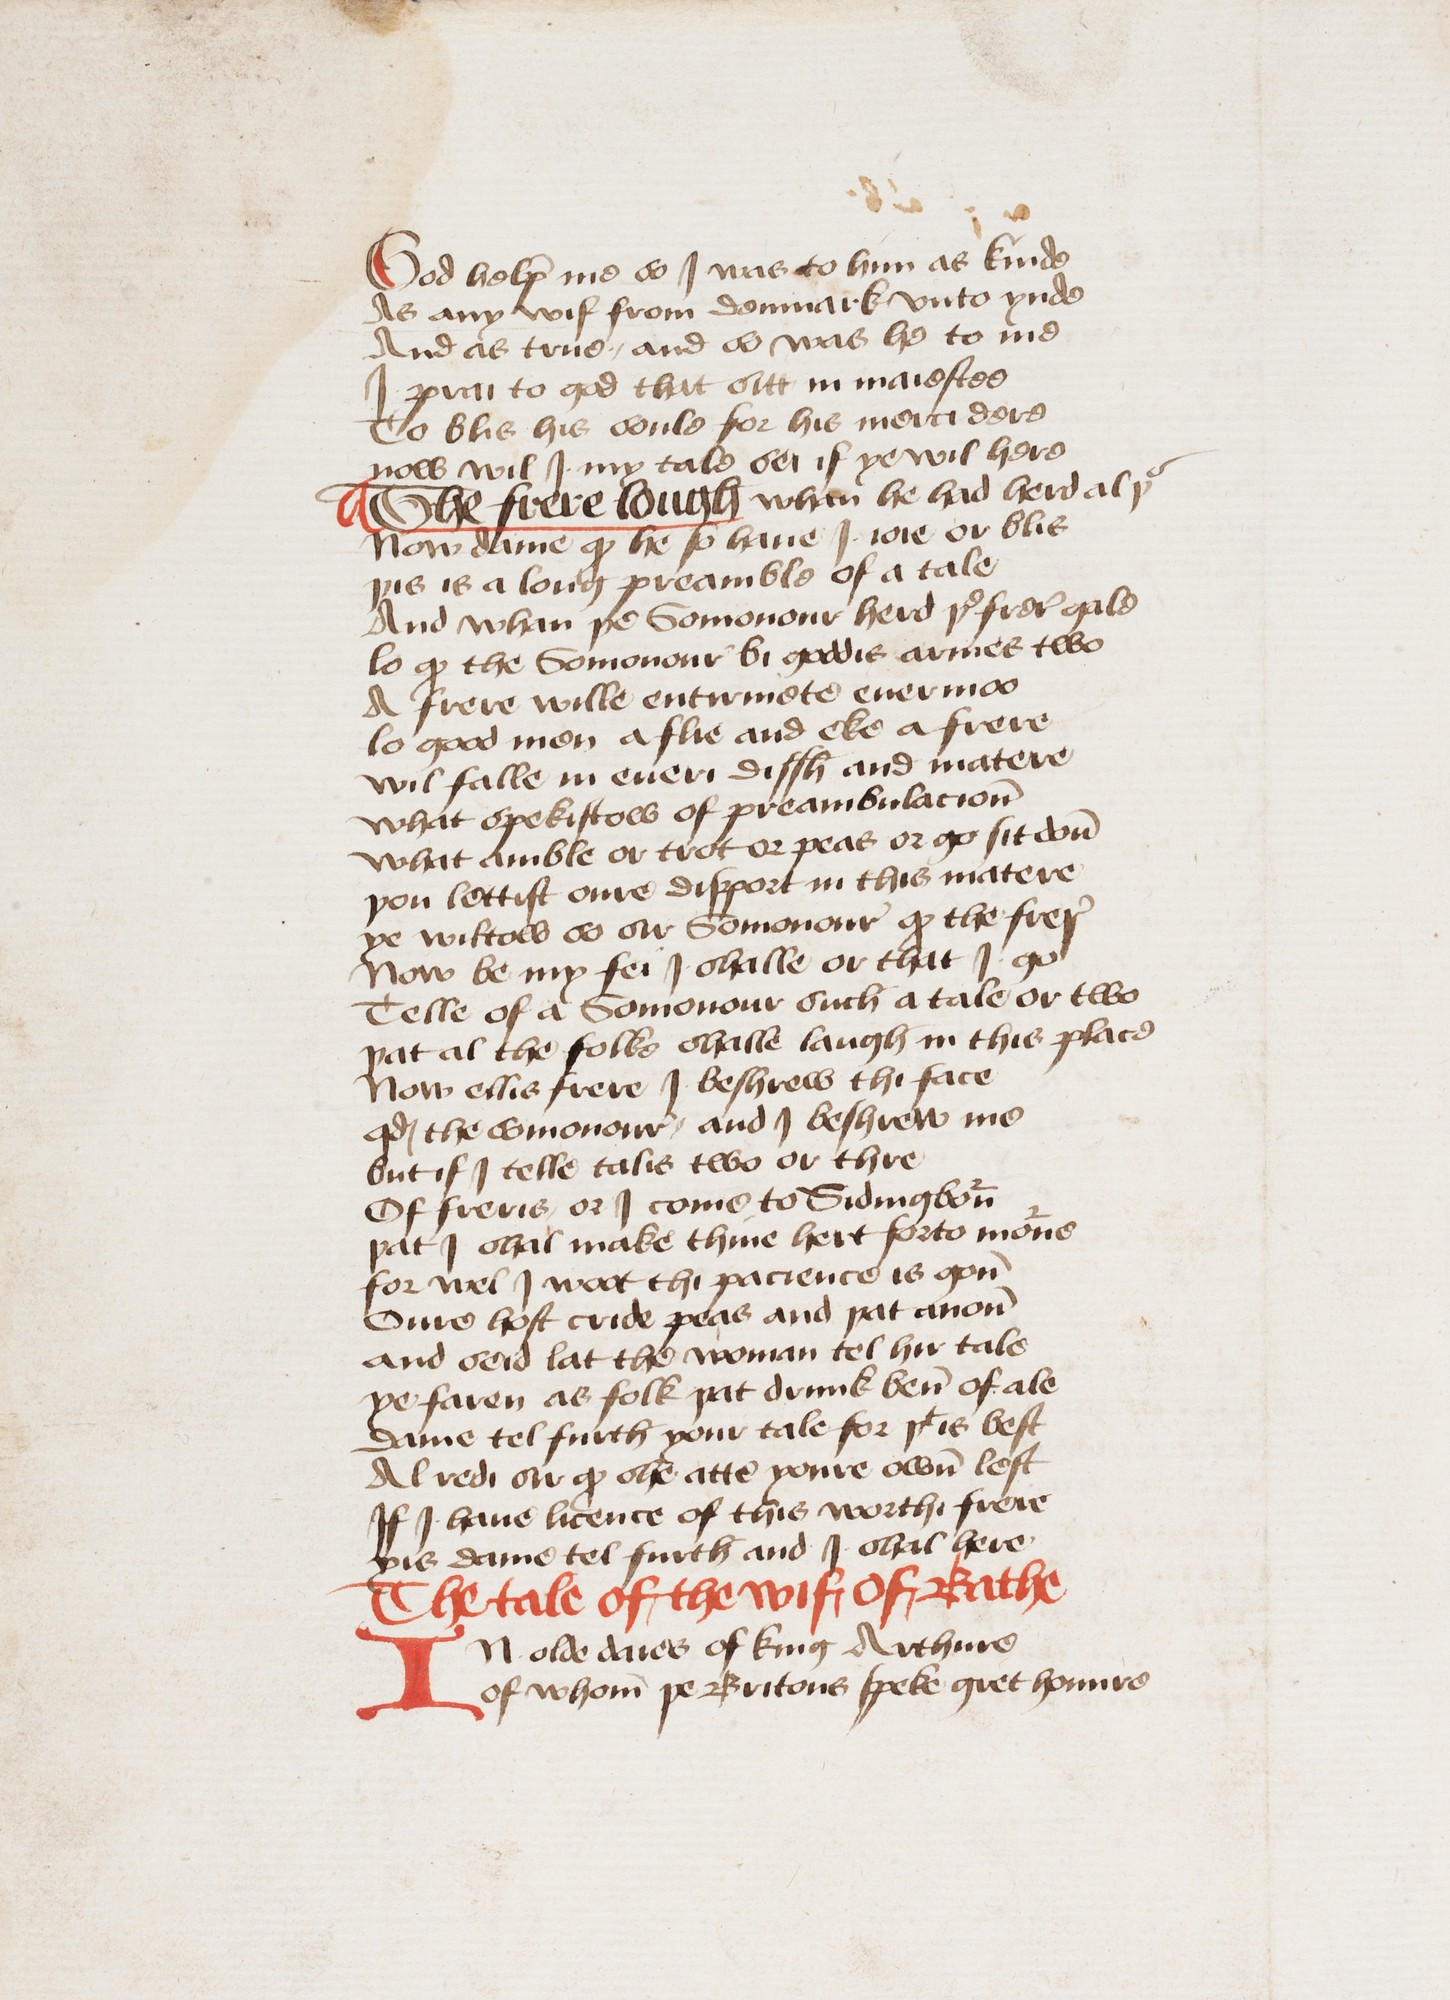 God help̄ me so I was to him as kinde
As any wif from denmark vnto ynde
And as true / and so was he to me
I prai to god that sitt in maiestee
To blis his soule for his merci dere
now wil I my tale sei if ye wil here
The frere lough whan̄ he had herd al þͤ
Now dame qͦ he so haue I ioie or blis
þis is a long preamble of a tale
And whan þe Somonour herd þͤ frerͤ gale
lo qͦ the Somonour bi goddis armes two
A frere wille entirmete euermoo
lo good men a flie and eke a frere
wil falle in eueri dissh and matere
what spekistow of preambulacion̄
what amble or trot or peas or go sit don̄
þou lettist oure disport in this matere
ye wiltow so sir Somonour qͦ the frerͤ
Now be my fei I shalle or that I go
Telle of a Somonour such a tale or two
þat al the folke shalle laugh in this place
Now ellis frere I beshrew thi face
qd the somonour / and I beshrew me
but if I telle talis two or thre
Of freris / or I come to Sidingborn̄
þat I shal make thine hert forto morne
for wel I woot thi pacience is gon̄
Oure host cride peas and þat anon̄
and seid lat the woman tel hir tale
ye faren as folk þat drunk ben̄ of ale
dame tel furth your tale for þͭ is best
Al redi sir qͦ she atte youre own̄ lest
If I haue licence of this worthi frere
yis dame tel furth and I shal here
The tale of the wif Of Bathe
IN olde daies of king Arthure
of whom̄ þe Britons speke gret honure